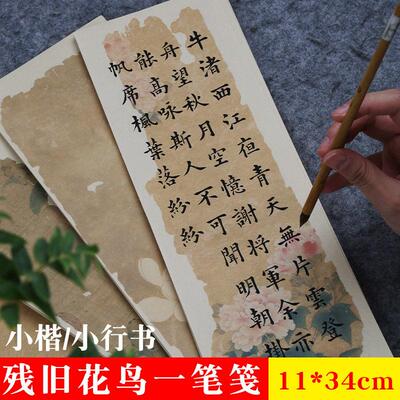 牛渚西江亱青天無片雲登
舟望秋月空憶謝將軍余亦
能高咏斯人不可聞明朝掛
帆席楓葉落紛紛
小楷/小行书
残旧花鸟一笔笺 11*34cm